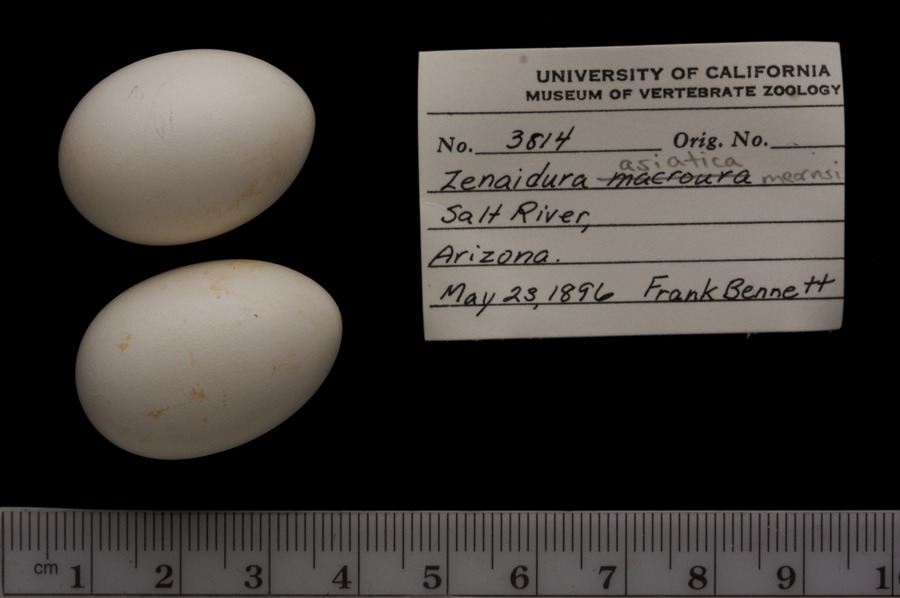 UNIVERSITY OF CALIFORNIA
MUSEUM OF VERTEBRATE ZOOLOGY
No. 3814 Orig. No.
asiatica
Zenaidura macroura mearnsi
Salt River,
Arizona.
May 23, 1896 Frank Bennett
cm 1 2 3 4 5 6 7 8 9 1